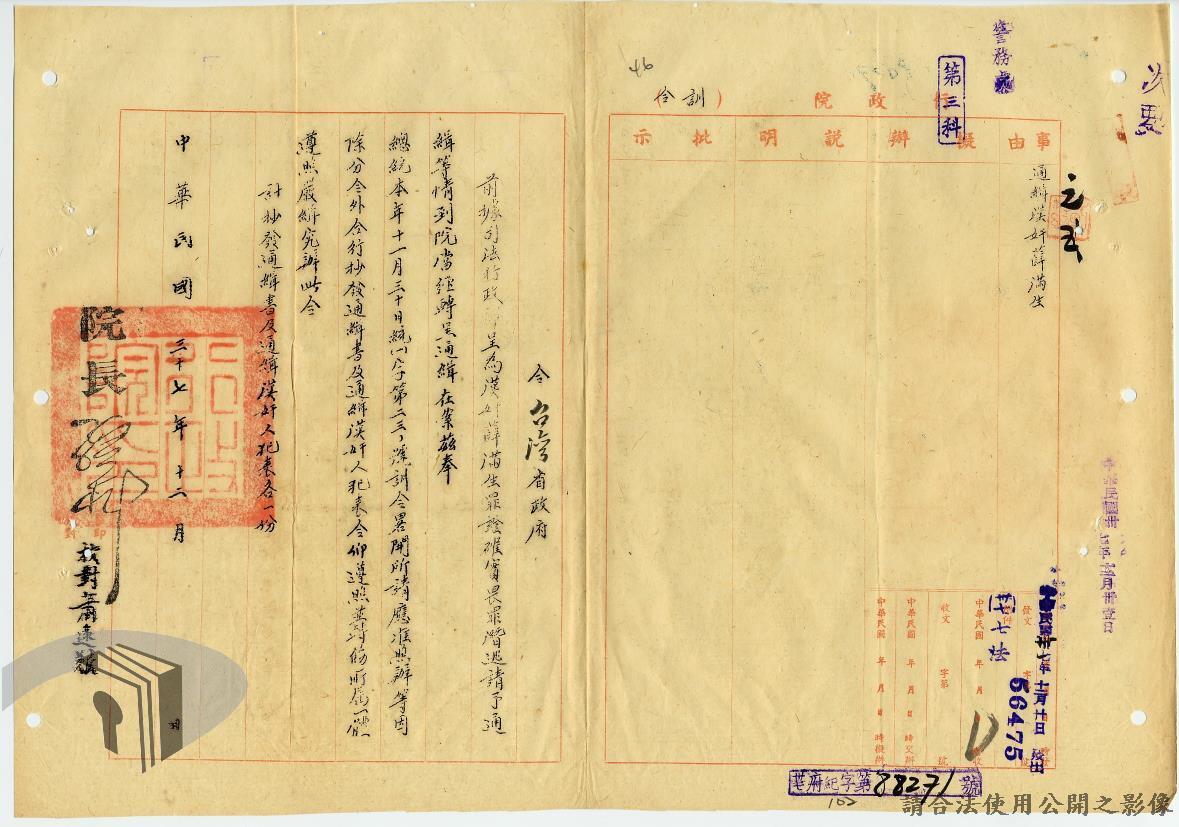 次要
警務處
第三科
行政院
(訓令)
46
事由
擬辦
說明
批示
通緝漢奸薛滿生
中華民國卅七年十二月卅壹日
中華民國卅七年十二月廿日發出
七法
56475
發文
附件
收文
字第
號
中華民國 年 月 日
中華民國 年 月 日 時交辦
中華民國 年 月 日 時擬辦
府紀字第88271號
102
令台灣省政府
前據司法行政部呈為漢奸薛滿生罪證確實畏罪潛逃請予通
緝等情到院當經轉呈通緝在案茲奉
總統本年十一月三十日統(一)字第二三,號訓令畧開所請應准照辦等因
除分令外合行抄發通緝書及通緝漢奸人犯表令仰遵照並轉飭所屬一體
遵照嚴緝究辦此令
計抄發通緝書及通緝漢奸人犯表各一份
中華民國三十七年十二月
院長孫科
校對蕭遠
行政院印
請合法使用公開之影像